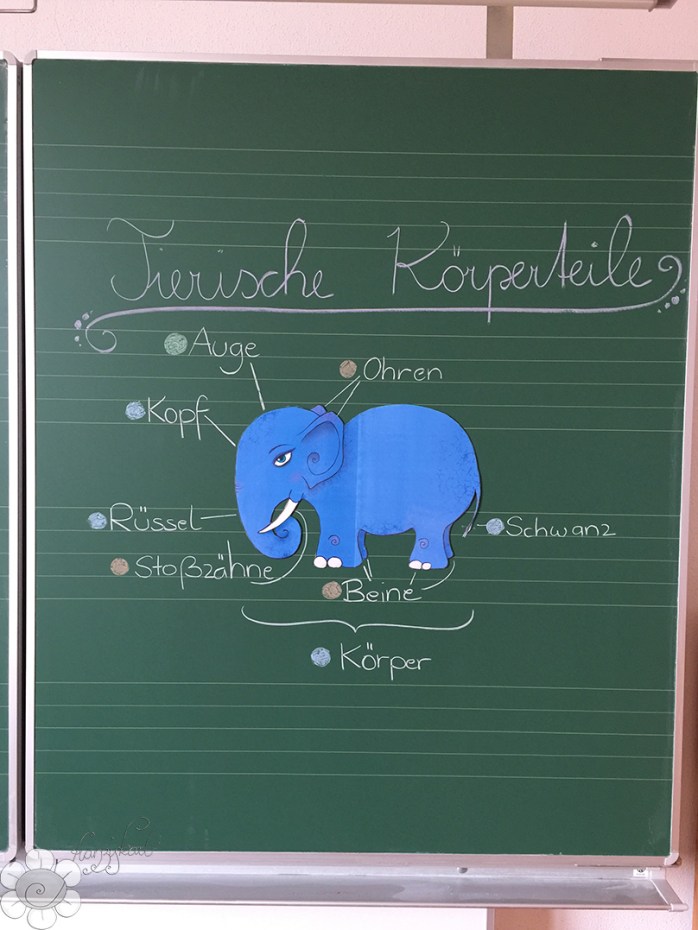 Tierische Körperteile
Auge
Ohren
Kopf
Rüssel
Schwanz
Stoßzähne
Beine
Körper